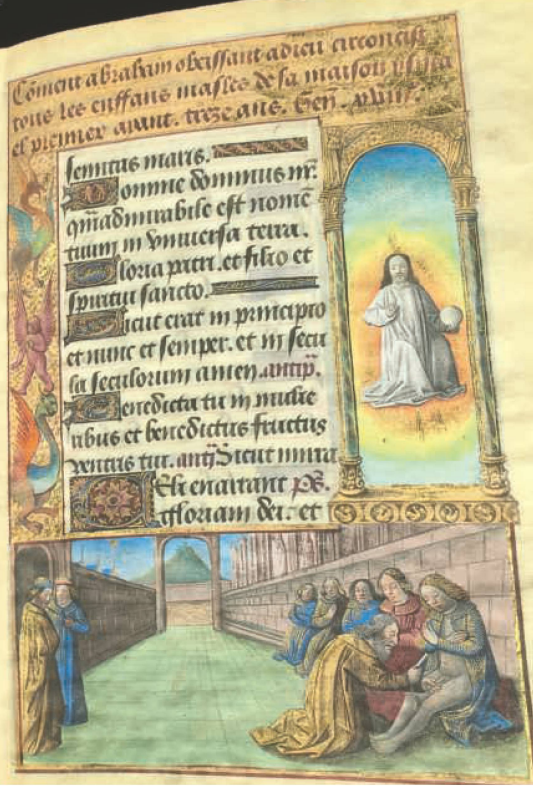 Cōment abraham obeissant adieu circoncist
tous les enffans masles de sa maison
et premier avant. treze ans. Gen. xvii.
semitas maris.
Domine dominus nr̄.
qm̄ admirabile est nomē
tuum in vniuersa terra.
Gloria patri. et filio et
spiritui sancto.
Sicut erat in principio
et nunc et semper. et in secu
la seculorum amen. antip̄.
Benedicta tu in mulie
ribus et benedictus fructus
ventris tui. antī Sicut mirra
Celi enarrant p̄s.
gloriam dei. et